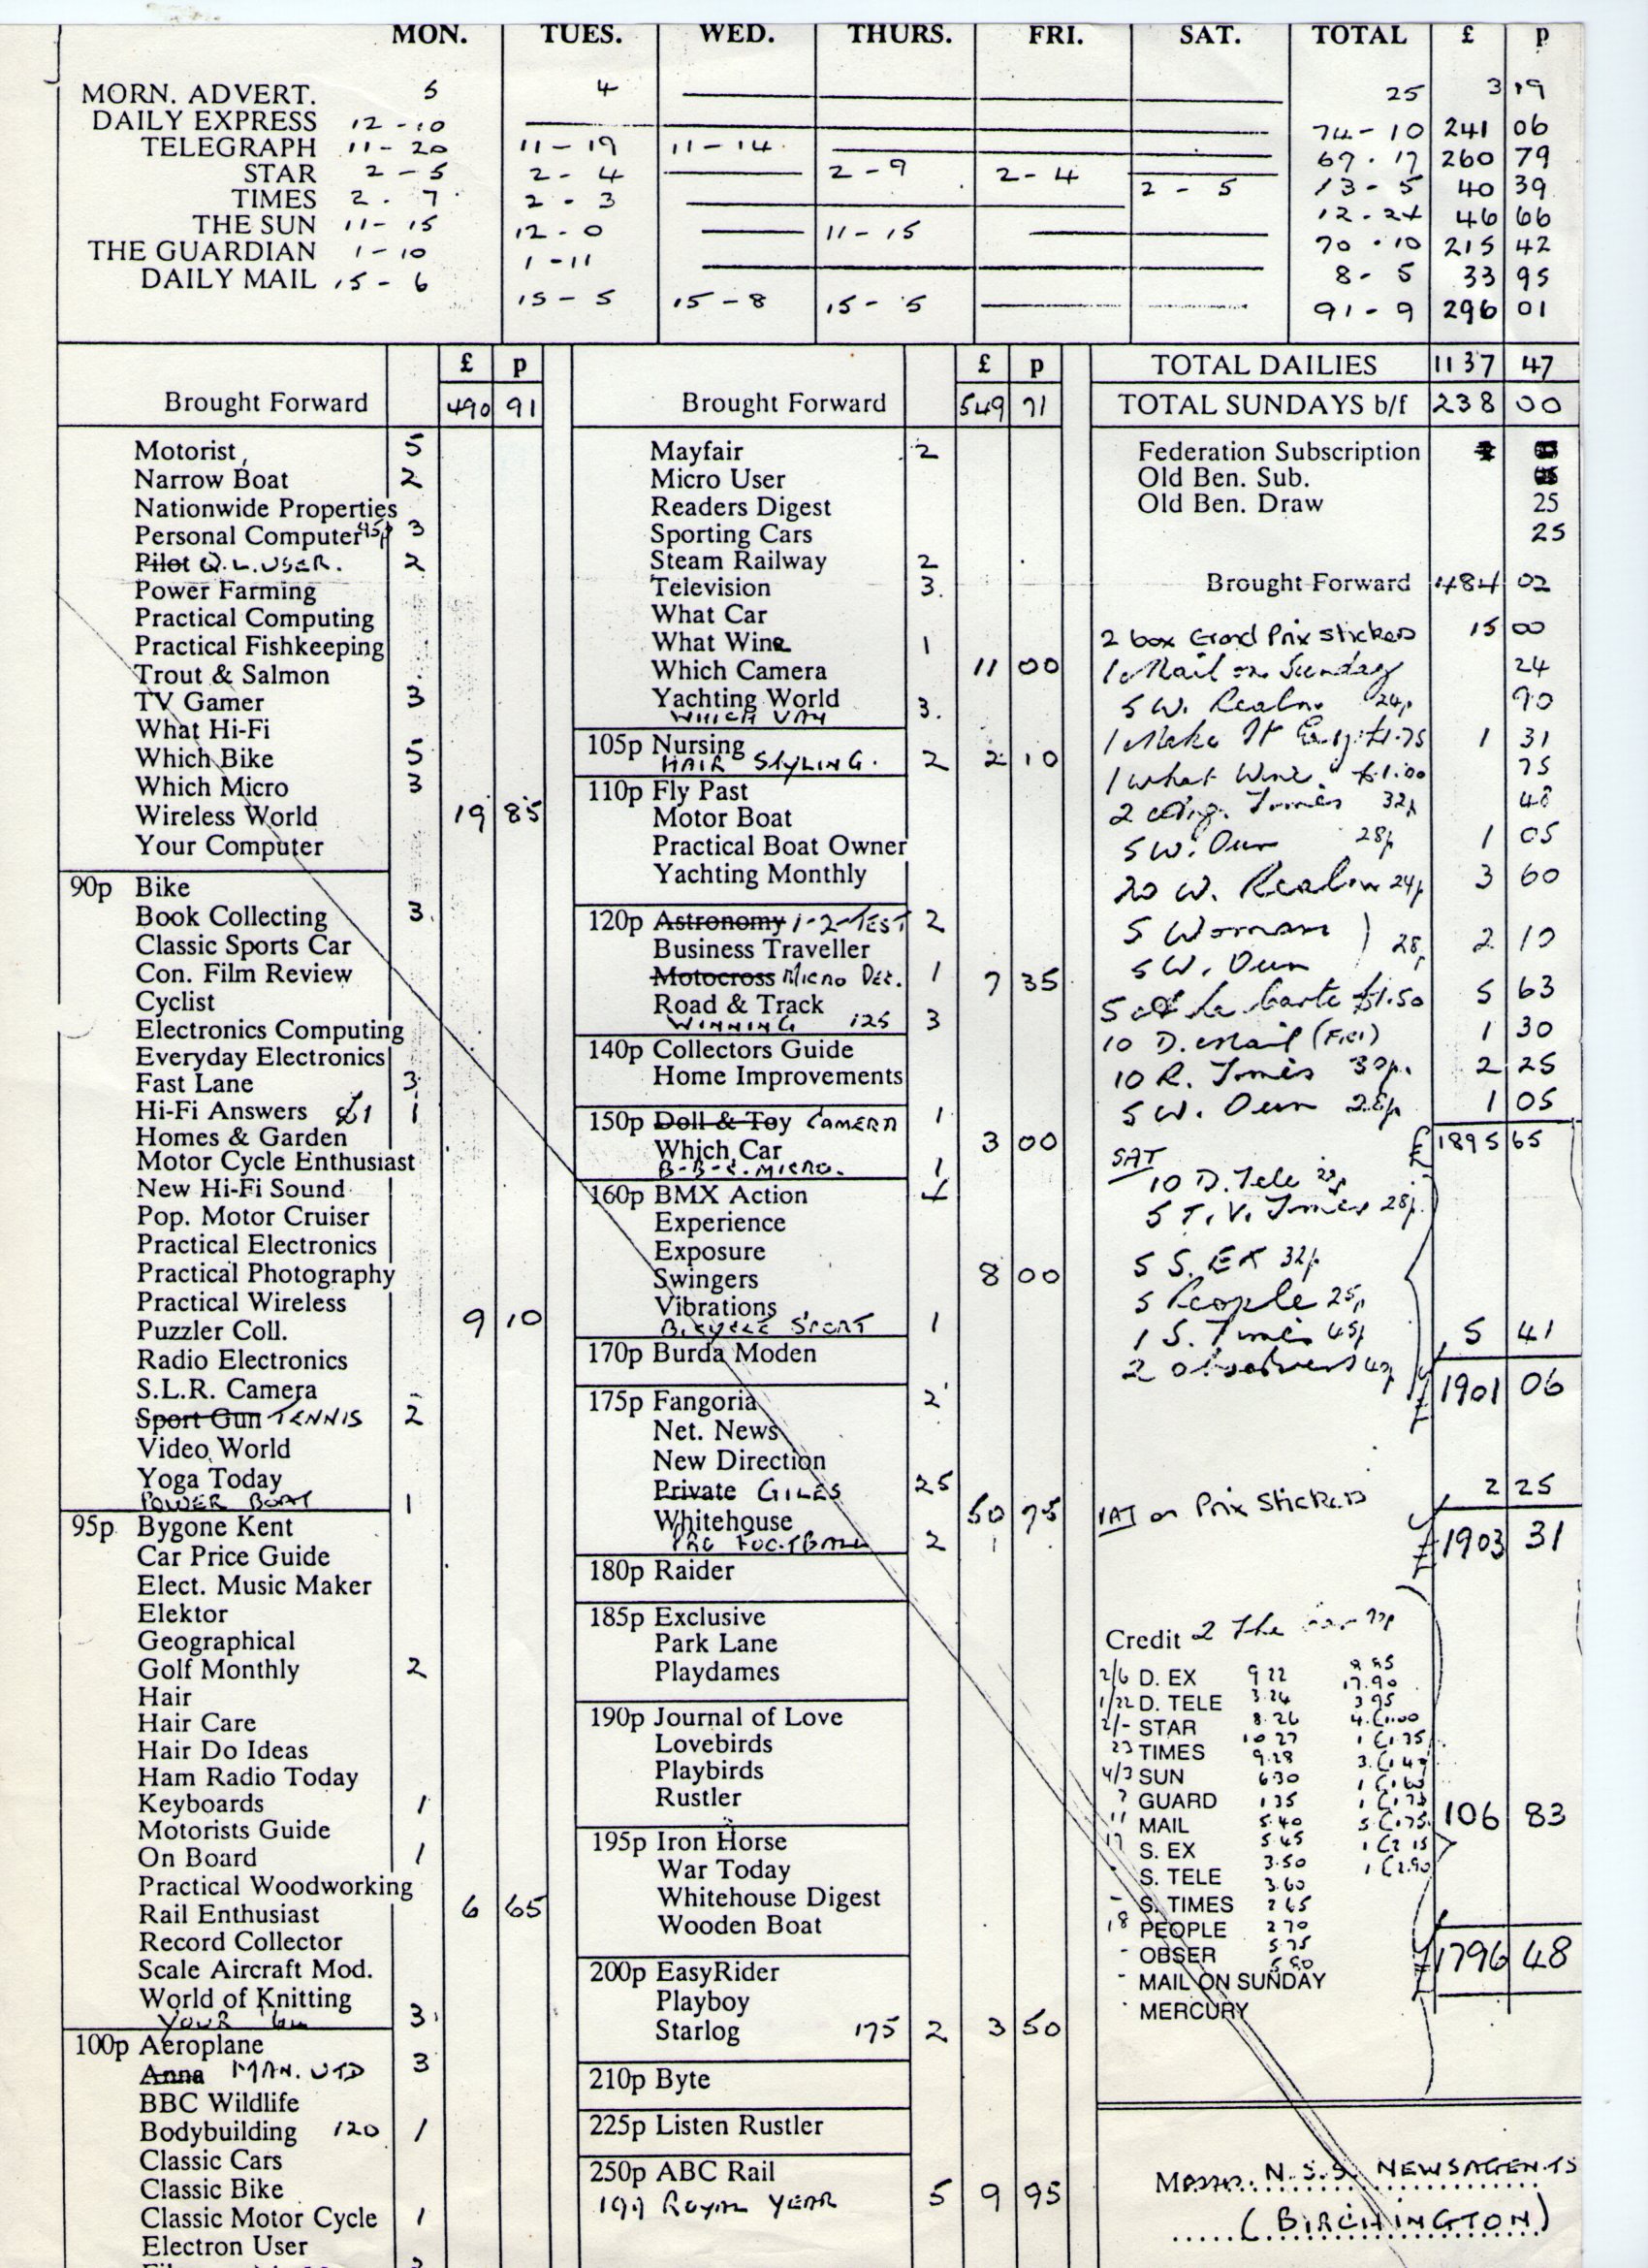 MON. TUES. WED. THURS. FRI. SAT. TOTAL £ p
MORN. ADVERT. 5 4 25 3 19
DAILY EXPRESS 12-10 74-10 241 06
TELEGRAPH 11-20 11-19 11-14 67-17 260 79
STAR 2-5 2-4 2-9 2-4 2-5 13-5 40 39
TIMES 2-7 2-3 46 66
THE SUN 11-15 12-0 11-15 70-10 215 42
THE GUARDIAN 1-10 1-11 8-5 33 95
DAILY MAIL 15-6 15-5 15-8 15-5 91-9 296 01
£ p
Brought Forward 490 91
Motorist 5
Narrow Boat 2
Nationwide Properties
Personal Computer 3
Pilot Q.L. USER. 2
Power Farming
Practical Computing
Practical Fishkeeping
Trout & Salmon
TV Gamer 3
What Hi-Fi
Which Bike 5
Which Micro 3
Wireless World 19 85
Your Computer
90p Bike
Book Collecting 3
Classic Sports Car
Con. Film Review
Cyclist
Electronics Computing
Everyday Electronics
Fast Lane 3
Hi-Fi Answers £1 1
Homes & Garden
Motor Cycle Enthusiast
New Hi-Fi Sound
Pop. Motor Cruiser
Practical Electronics
Practical Photography
Practical Wireless
Puzzler Coll. 9 10
Radio Electronics
S.L.R. Camera
Sport Gun TENNIS 2
Video World
Yoga Today
POWER BOAT 1
95p Bygone Kent
Car Price Guide
Elect. Music Maker
Elektor
Geographical
Golf Monthly 2
Hair
Hair Care
Hair Do Ideas
Ham Radio Today
Keyboards 1
Motorists Guide
On Board 1
Practical Woodworking
Rail Enthusiast 6 65
Record Collector
Scale Aircraft Mod.
World of Knitting
YOUR 64 3
100p Aeroplane
Anna MAN. UTD 3
BBC Wildlife
Bodybuilding 120 1
Classic Cars
Classic Bike
Classic Motor Cycle 1
Electron User
£ p
Brought Forward 549 71
Mayfair 2
Micro User
Readers Digest
Sporting Cars
Steam Railway 2
Television 3
What Car
What Wine 1
Which Camera 11 00
Yachting World
WHICH VAN 3.
105p Nursing
HAIR STYLING. 2 2 10
110p Fly Past
Motor Boat
Practical Boat Owner
Yachting Monthly
120p Astronomy 1-2-TEST 2
Business Traveller
Motocross MICRO DEC. 1 7 35
Road & Track
WINNING 125 3
140p Collectors Guide
Home Improvements
150p Doll & Toy CAMERA 1
Which Car 3 00
B-B-C. MICRO. 1
160p BMX Action 4
Experience
Exposure
Swingers 8 00
Vibrations
BICYCLE SPORT 1
170p Burda Moden
175p Fangoria 2
Net. News
New Direction
Private GILES 25
Whitehouse 50 75
FOOTBALL 2
180p Raider
185p Exclusive
Park Lane
Playdames
190p Journal of Love
Lovebirds
Playbirds
Rustler
195p Iron Horse
War Today
Whitehouse Digest
Wooden Boat
200p EasyRider
Playboy
Starlog 175 2 3 50
210p Byte
225p Listen Rustler
250p ABC Rail
199 ROYAL YEAR 5 9 95
TOTAL DAILIES 1137 47
TOTAL SUNDAYS b/f 238 00
Federation Subscription
Old Ben. Sub.
Old Ben. Draw 25
25
Brought Forward 484 02
2 box Grand Prix Stickers 15 00
1 Mail on Sunday 24
5 W. Realm 24p 90
1 Make It Easy £1.75 1 31
1 What Wine £1.00 75
2 Times 32p 48
5 W. Own 28p 1 05
20 W. Realm 24p 3 60
5 Woman
5 W. Own 28p 2 10
5 a la Carte £1.50 5 63
10 D. Mail (FRI) 1 30
10 R. Times 30p. 2 25
5 W. Own 28p 1 05
£ 1895 65
SAT
10 D. Tele
5 T.V. Times 28p
5 S. EX 32p
5 People 25p
1 S. Times 45p 5 41
2 Observers
£ 1901 06
Prix Stickers 2 25
£ 1903 31
Credit 2 The
2/6 D. EX 9 22
1/22 D. TELE 3.24 17.90
2/- STAR 8.26 3 95
23 TIMES 10 27
4/3 SUN 9.28
7 GUARD 6.30
11 MAIL 1 35
17 S. EX 5.40
S. TELE 5.45
- S. TIMES 3.50
18 PEOPLE 3.60
- OBSER 2 65
- MAIL ON SUNDAY 2 70
MERCURY 5.75
106 83
£ 1796 48
Messrs. N.S.S. NEWSAGENTS
(BIRCHINGTON)